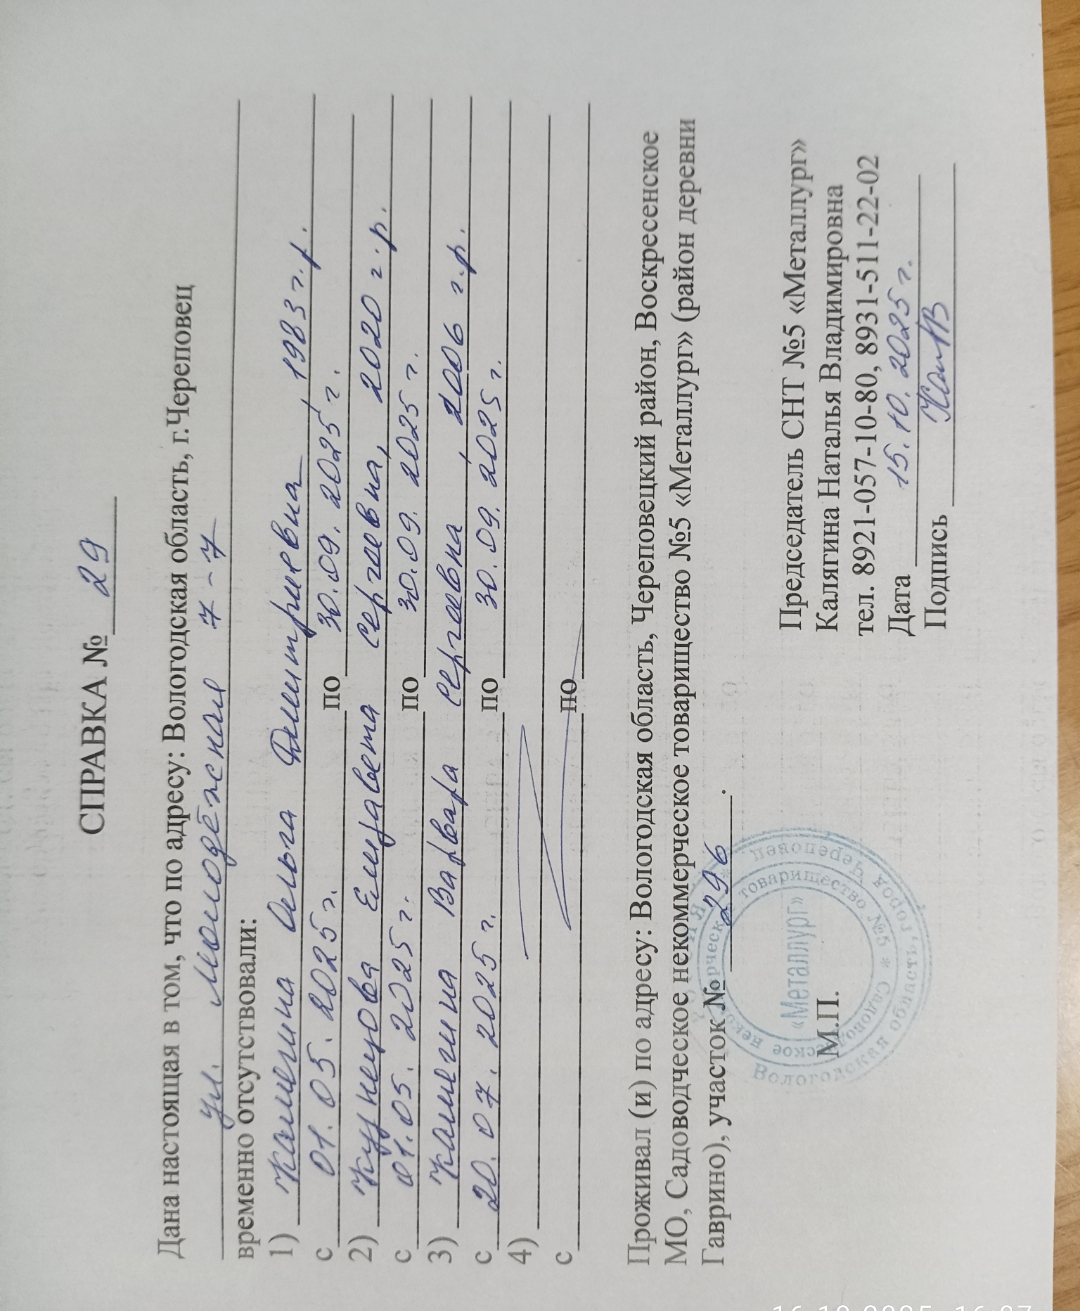 СПРАВКА № 29
Дана настоящая в том, что по адресу: Вологодская область, г.Череповец
ул. Молодёжная 7-7
временно отсутствовали:
1) Ольга Дмитриевна, 1983 г.р.
с 01.05.2025г. по 30.09.2025 г.
2) Кузнецова Елизавета Сергеевна, 2020 г.р.
с 01.05.2025г. по 30.09.2025 г.
3) Варвара Сергеевна, 2006 г.р.
с 20.07.2025 г. по 30.09.2025 г.
4)
с по
Проживал (и) по адресу: Вологодская область, Череповецкий район, Воскресенское
МО, Садоводческое некоммерческое товарищество №5 «Металлург» (район деревни
Гаврино), участок № 296.
Председатель СНТ №5 «Металлург»
Калягина Наталья Владимировна
тел. 8921-057-10-80, 8931-511-22-02
Дата 15.10.2025 г.
Подпись
М.П.
«Металлург»
товарищество №5 * Садоводческое
Вологодская область, город Череповец